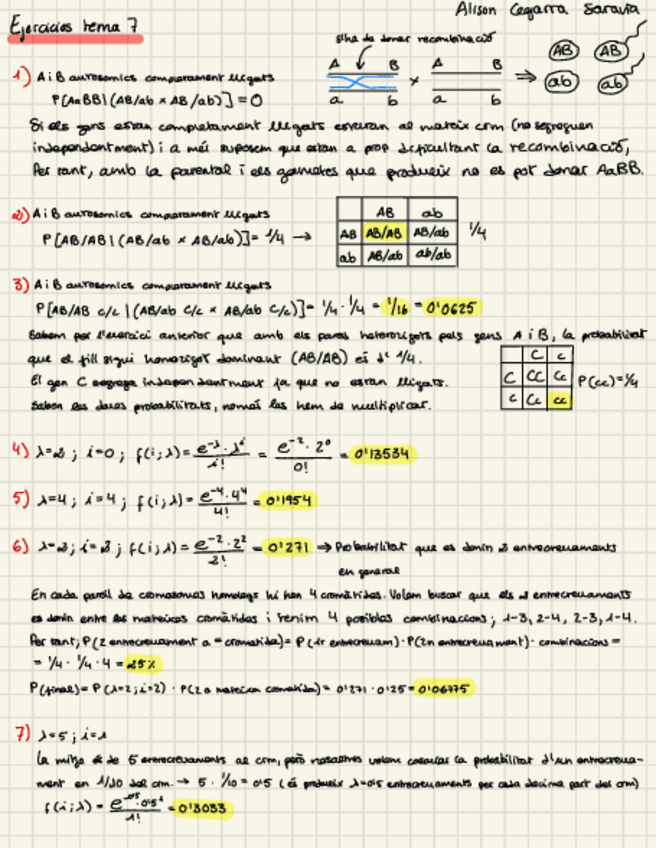 Alison Cegarra Saravia
Ejercicios tema 7
silha de donar recombinació
A B A B
a b a b
AB AB
ab ab
1) A i B autosomics completament lligats
P[AaBB|(AB/ab × AB/ab)] = 0
Si els gens estan completament lligats estaran al mateix crm (no segreguen
independentment) i a més suposem que estan a prop dificultant la recombinació,
Per tant, amb la parental i els gametes que produeix no es pot donar AaBB.
2) A i B autosomics completament lligats
P[AB/AB|(AB/ab × AB/ab)] = 1/4 →
AB ab
AB AB/AB AB/ab
ab AB/ab ab/ab
1/4
3) A i B autosomics completament lligats
P[AB/AB c/c | (AB/ab C/c × AB/ab C/c)] = 1/4 · 1/4 = 1/16 = 0'0625
Sabem per l'exercici anterior que amb els pares heterozigots pels gens A i B, la probabilitat
que el fill sigui homozigot dominant (AB/AB) és d' 1/4.
El gen C segrega independentment ja que no estan lligats.
Saben les dues probabilitats, només les hem de multiplicar.
C c
C CC Cc
c Cc cc
P(cc)=1/4
4) λ=2 ; i=0 ; f(i;λ) = e^-λ · λ^i / i! = e^-2 · 2^0 / 0! = 0'13534
5) λ=4 ; i=4 ; f(i;λ) = e^-4 · 4^4 / 4! = 0'1954
6) λ=2 ; i=2 ; f(i;λ) = e^-2 · 2^2 / 2! = 0'271 ⇒ Probabilitat que es donin 2 entrecreuaments
en general
En cada parell de cromosomes homòlegs hi han 4 cromàtides. Volem buscar que els 2 entrecreuaments
es donin entre les mateixes cromàtides i tenim 4 posibles combinacions ; 1-3, 2-4, 2-3, 1-4.
Per tant; P(2 entrecreuament a = cromatida) = P(1r entrecreuam) · P(2n entrecreuament) · combinacions =
= 1/4 · 1/4 · 4 = 25%
P(final) = P(λ=2; i=2) · P(2 a mateixa cromatida) = 0'271 · 0'25 = 0'06775
7) λ=5 ; i=1
La mitja és de 5 entrecreuaments al crm, però nosaltres volem calcular la probabilitat d'un entrecreua-
ment en 1/10 del crm. → 5 · 1/10 = 0'5 (es produeix λ=0'5 entrecreuaments per cada dècima part del crm)
f(i;λ) = e^-0'5 · 0'5^1 / 1! = 0'3033